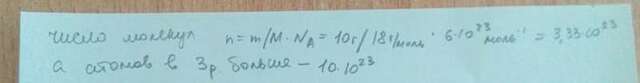 число молекул n = m/M · N_A = 10г/18г/моль · 6·10²³ моль⁻¹ = 3,33·10²³
а атомов в 3р. больше – 10·10²³